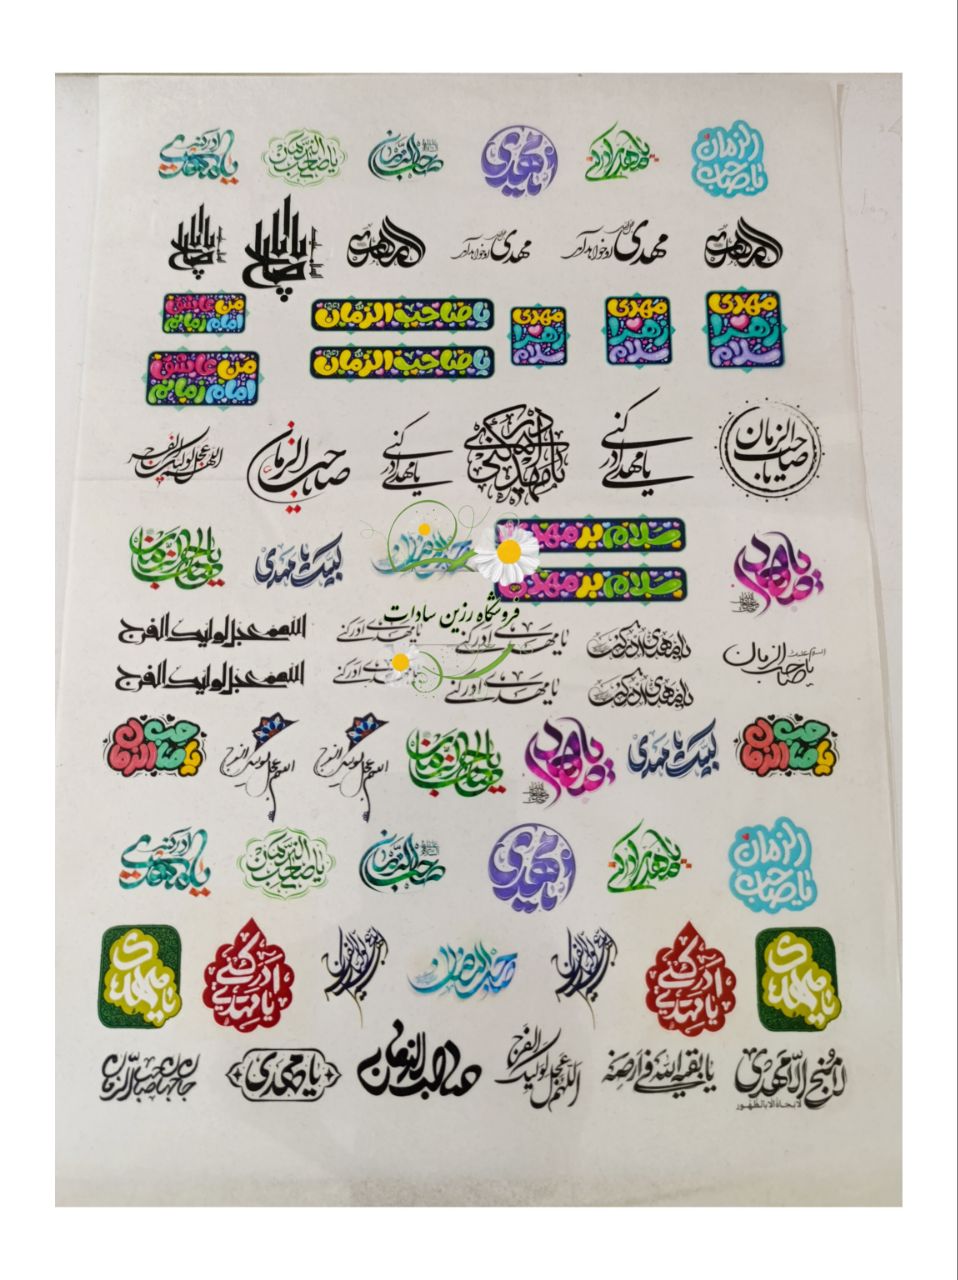 یا مهدی ادرکنی
یا صاحب الزمان
صاحب الزمان
یا مهدی
یا مهدی ادرکنی
یا صاحب الزمان
مهدی او خواهد آمد
مهدی او خواهد آمد
من عاشق
امام زمانم
یا صاحب الزمان
مهدی
زهرا
سلام
مهدی
زهرا
سلام
مهدی
زهرا
سلام
من عاشق
امام زمانم
یا صاحب الزمان
اللهم عجل لولیک الفرج
صاحب الزمان
یا مهدی ادرکنی
یا مهدی ادرکنی
یا مهدی ادرکنی
یا صاحب الزمان
لبیک یا مهدی
سلام بر مهدی
سلام بر مهدی
فروشگاه رزین سادات
اللهم عجل لولیک الفرج
یا مهدی ادرکنی
یا مهدی ادرکنی
یا مهدی ادرکنی
السلام علیک یا صاحب الزمان
اللهم عجل لولیک الفرج
یا مهدی ادرکنی
یا مهدی ادرکنی
یا مهدی ادرکنی
یا صاحب الزمان
اللهم عجل لولیک الفرج
اللهم عجل لولیک الفرج
لبیک یا مهدی
یا صاحب الزمان
یا مهدی ادرکنی
یا صاحب الزمان
صاحب الزمان
یا مهدی
یا مهدی ادرکنی
یا صاحب الزمان
یا مهدی
یا مهدی ادرکنی
صاحب الزمان
یا مهدی ادرکنی
یا مهدی
یا مهدی
صاحب الزمان
اللهم عجل لولیک الفرج
یا بقیة الله فی ارضه
لا منجی الا المهدی
لا نجاة الا بالظهور